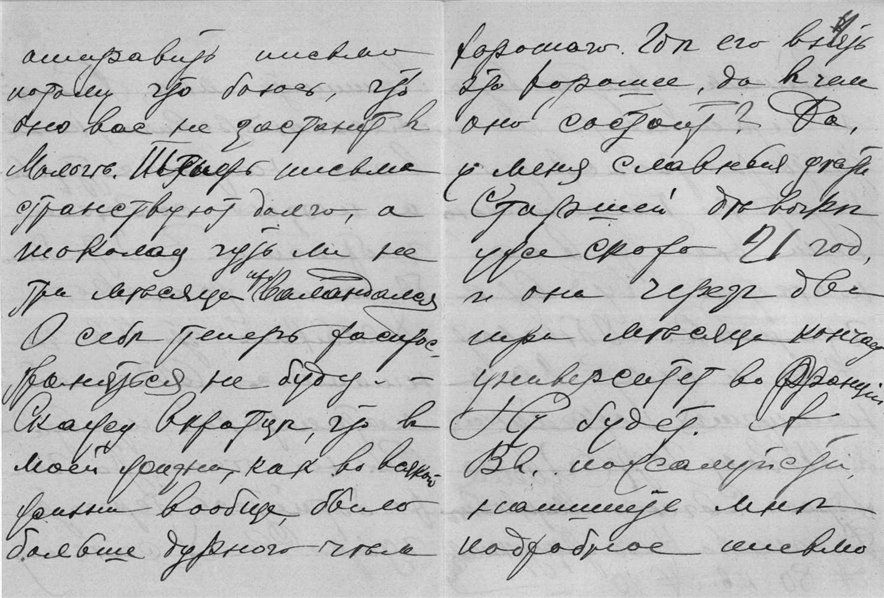 отправить письмо
потому что боюсь, что
оно вас не застанет в
Мологе. Теперь письма
странствуют долго, а
шоколад чуть ли не
три мѣсяца проваландался
О себѣ теперь распрос-
траняться не буду. —
Скажу вкратцѣ, что в
моей жизни, как во всякой
жизни вообще, было
больше дурного чѣм
хорошаго. Гдѣ его взять
это хорошее, да в чем
оно состоит? Да,
у меня славныя дѣти
Старшей дѣвочкѣ
уже скоро 21 год,
и она через два
три мѣсяца кончает
университет во Франціи
Ну будет. А
Вы, пожалуйста,
напишите мнѣ
подробное письмо